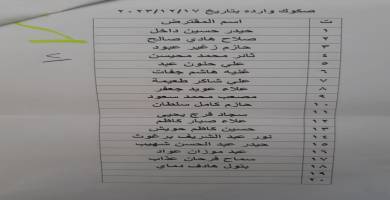 صكوك وارده بتاريخ ٢٠٢٣/١٢/١٧
ت اسم المقترض
١ حيدر حسين داخل
٢ صلاح هادي صالح
٣ حازم زغير عبود
٤ ثائر محمد محيسن
٥ علي حنون عبد
٦ غنيه هاشم جفات
٧ علي شاكر طعيمة
٨ علاء عويد جعفر
٩ مصعب محمد سعود
١٠ حازم كامل سلطان
١١ سجاد فرج يحيى
١٢ علاء صبار كاظم
١٣ حسين كاظم حويش
١٤ نور عبد الشريف برغوث
١٥ حيدر عبد الحسن شهيب
١٦ عبد موزان عواد
١٧ سماح فرحان عذاب
١٨ بتول هادف دماي
١٩
٢٠